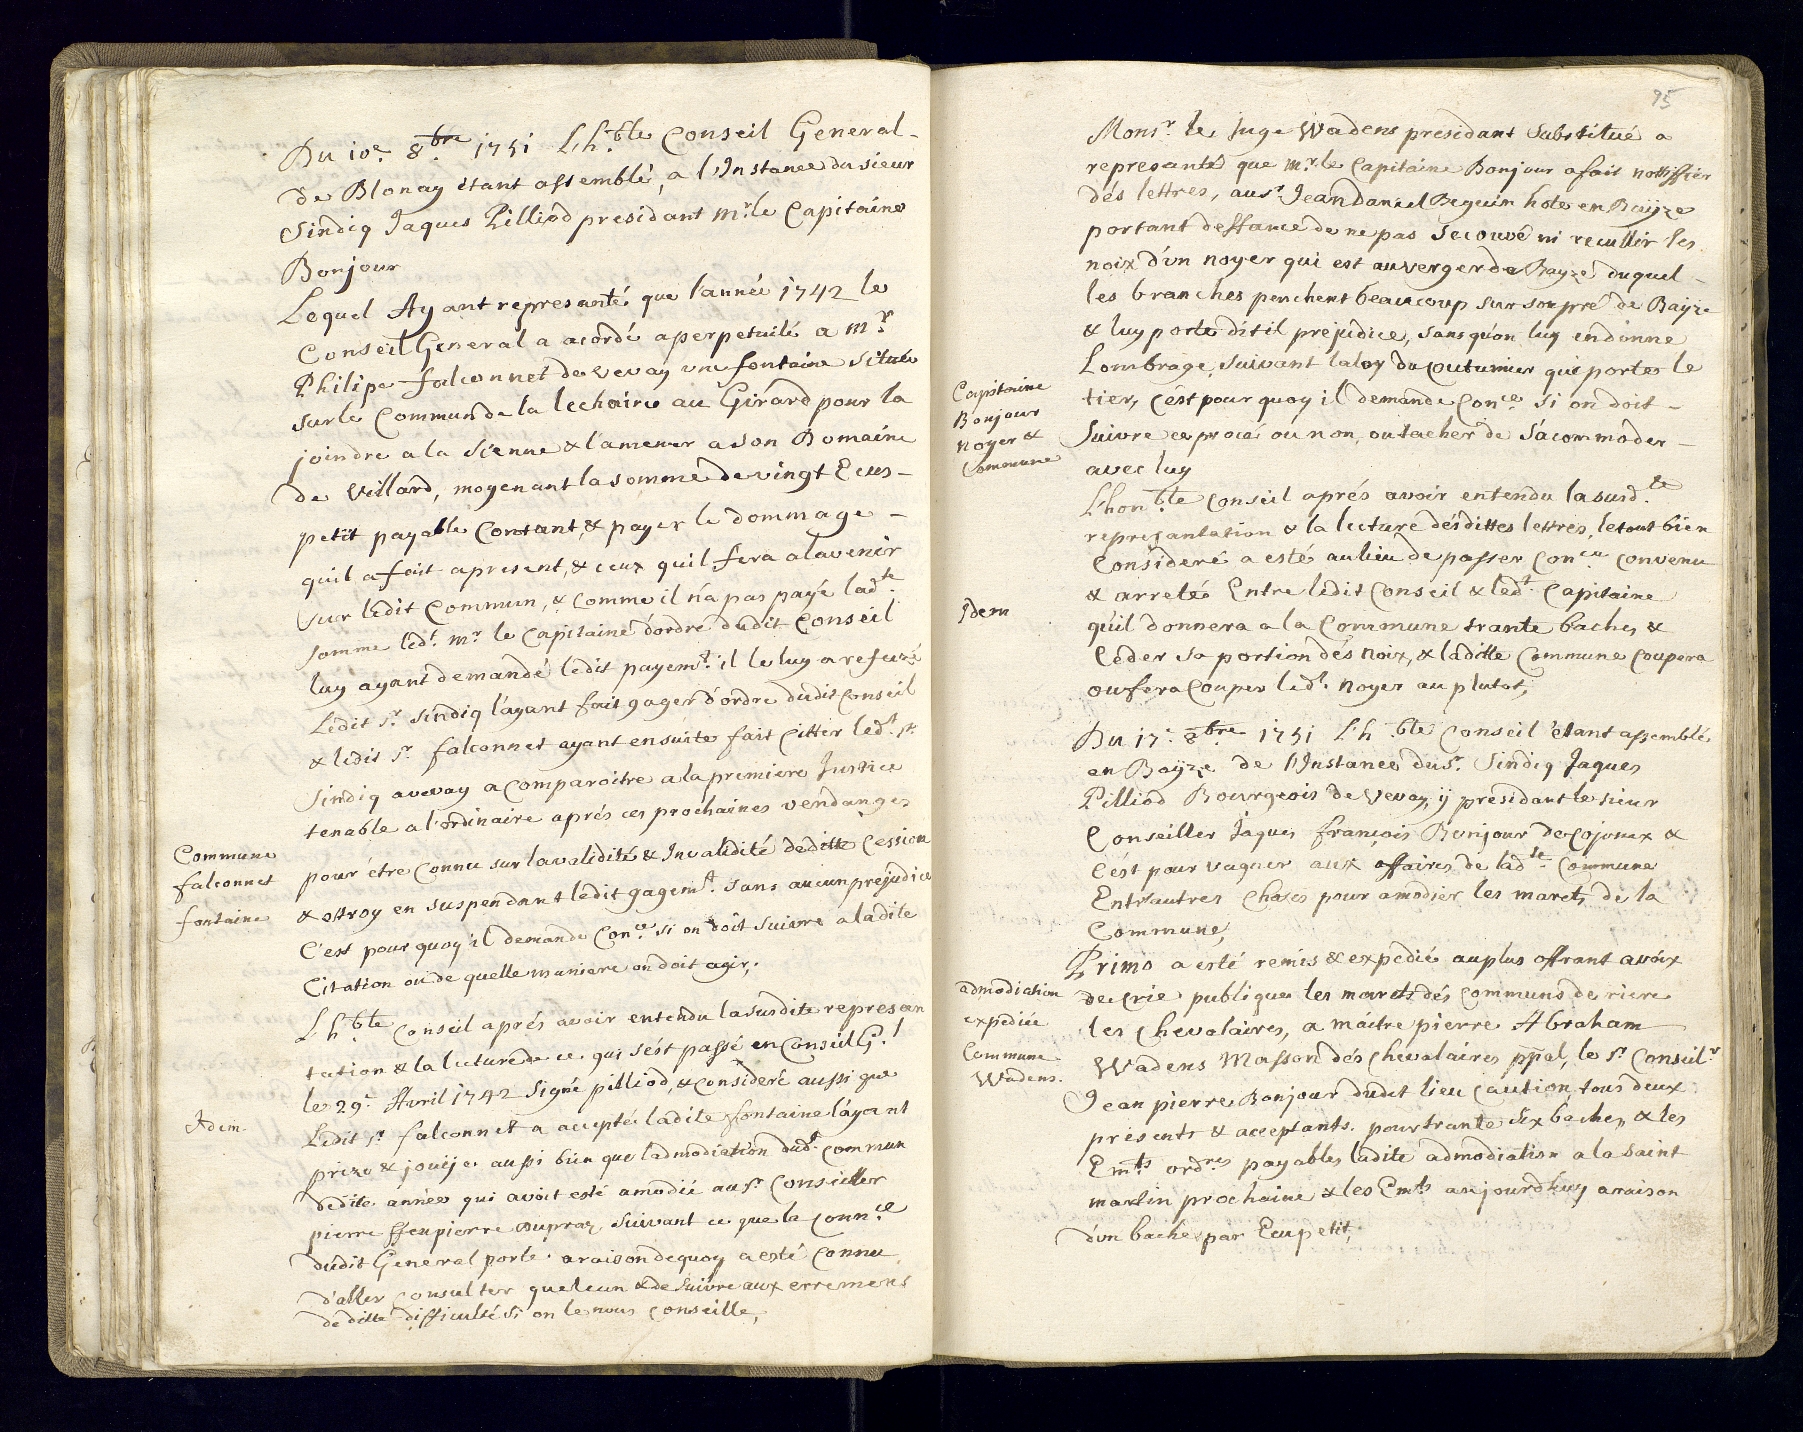 Du 10e. 8bre 1751 Lh.ble Conseil General
de Blonay étant assemblé, a l'Instance du sieur
Sindiq Jaques Pilliod presidant mr. le Capitaine
Bonjour
Lequel Ayant represanté que l'année 1742 le
Conseil General a acordé a perpetuité a Mr.
Philipe falconnet de Vevay une fontaine située
sur le Commun de la lechaire au Girard pour la
joindre a la Sienne & l'amener a son Domaine
de Villard, moyenant la somme de vingt Ecus
petit payable Contant, & payer le dommage
quil a fait apresent, & ceux quil fera alavenir
sur ledit Commun, & comme il n'a pas payé ladte.
somme ledt. mr le Capitaine d'ordre dudit Conseil
luy ayant demandé ledit payemt. il le luy a refuzé
Ledit Sr. Sindiq l'ayant fait gager d'ordre dudit Conseil
& ledit Sr. falconnet ayant ensuite fait Citter ledt. Sr.
Sindiq a vevay a Comparoitre a la premiere Justice
tenable a l'ordinaire aprés ces prochaines vendanges
Commune
falconnet
fontaine
pour étre Connu sur lavalidité & Invalidité de ditte Cession
& ottroy en suspendant ledit gagemt. sans aucun prejudice
C'est pour quoy il demande Conce. si on doit suivre a ladite
Citation ou de quelle maniere on doit agir,.
Lh.ble Conseil aprés avoir entendu lasusdite represan
tation & la lecture de ce qui s'est passé en Conseil Gl.
le 29e. Avril 1742 Signé pilliod, & Consideré aussi que
Idem
Ledit Sr. falconnet a accepté ladite fontaine l'ayant
prize & jouije aussi bien que l'admodiation dudt. commun
dedite année qui avoit esté amodié au Sr. Consieller
pierre ffeu pierre Dupraz suivant ce que la Connce
dudit General porte. a raison dequoy a esté Connu
d'aller Consulter quelcun & de Suivre aux erremens
de ditte difficulté si on le nous Conseille,
95
Monsr. le Juge Wadens presidant Substitué a
represanté que mr. le Capitaine Bonjour a fait nottiffier
dés lettres, au sr. Jean Daniel Beguin hote en Bayze
portant deffance de ne pas Secouvé ni recullir les
noix d'un noyer qui est au verger de Bayze duquel
les branches penchent beaucoup sur son pré de Bayze
& luy porte ditil prejudice, sans qu'on luy en donne
Lombrage, Suivant la loy du Coutumier qui porte le
Capitaine
Bonjour
Noyer &
Commune
tier, c'ést pour quoy il demande Conce. si on doit
Suivre ce procé ou non, ou tacher de S'acommoder
avec luy
Lhon.ble Conseil aprés avoir entendu la susdte.
represantation & la lecture désdittes lettres, le tout bien
Consideré a esté au lieu de passer Conce convenu
& arreté Entre ledit Conseil & ledt. Capitaine
Idem
qu'il donnera a la Commune trante baches &
Céder sa portion dés Noix, & laditte Commune Coupera
ou fera Couper ledt. noyer au plutot,
Du 17e. 8bre 1751 Lh.ble Conseil étant assemblé
en Bayze de l'Instance du Sr. Sindiq Jaques
Pilliod Bourgeois de Vevay, ÿ presidant le sieur
Conseiller Jaques françois Bonjour de Cojonex &
C'ést pour vaguer aux affaires de ladte. Commune
Entr'autres Choses pour amodier les marets de la
Commune,
Primo a esté remis & expedié au plus offrant a voix
admodiation
expediée
Commune
Wadens.
de Crie publique les marets dés Communs de riere
les Chevalaires, a maitre pierre Abraham
Wadens Masson dés Chevalaires ppal, le Sr. Conseilr
Jean pierre Bonjour dudit lieu Caution, tous deux
présents & acceptants. pour trante Six baches & les
Emts ordres payables ladite admodiation a la Saint
martin prochaine & les Emts anjourd'huy a raison
d'un bache par Ecu petit,